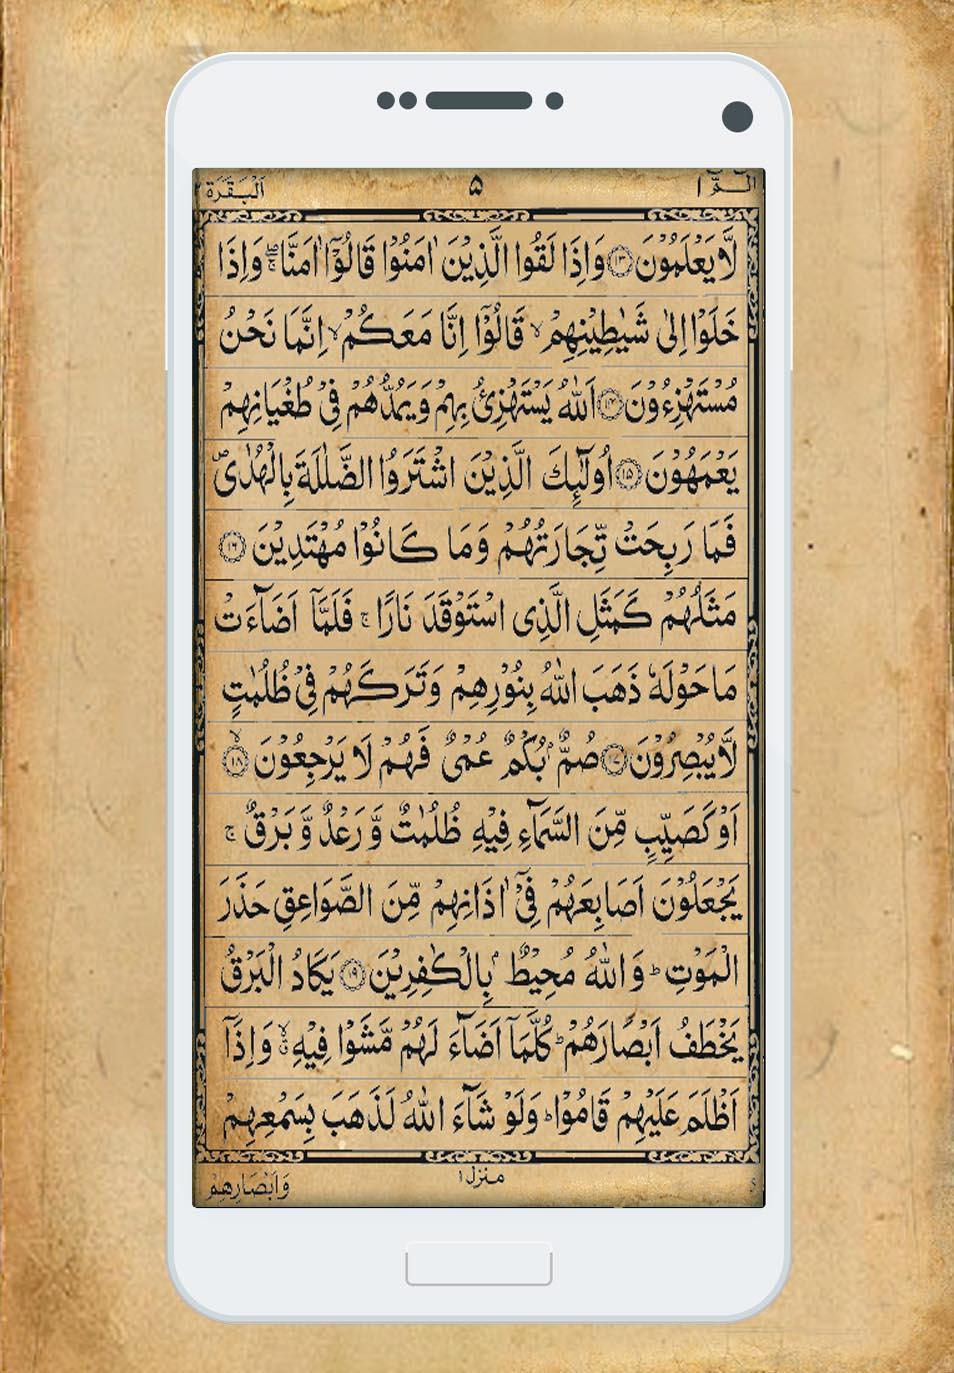 الٓمّٓ ۱ ۵ اَلْبَقَرَة ۲
لَّا يَعْلَمُوْنَ ﴿۱۳﴾ وَاِذَا لَقُوا الَّذِيْنَ اٰمَنُوْا قَالُوْٓا اٰمَنَّا ۖۚ وَاِذَا
خَلَوْا اِلٰى شَيٰطِيْنِهِمْ ۙ قَالُوْٓا اِنَّا مَعَكُمْ ۙ اِنَّمَا نَحْنُ
مُسْتَهْزِءُوْنَ ﴿۱۴﴾ اَللّٰهُ يَسْتَهْزِئُ بِهِمْ وَيَمُدُّهُمْ فِيْ طُغْيَانِهِمْ
يَعْمَهُوْنَ ﴿۱۵﴾ اُولٰٓئِكَ الَّذِيْنَ اشْتَرَوُا الضَّلٰلَةَ بِالْهُدٰى ۪
فَمَا رَبِحَتْ تِّجَارَتُهُمْ وَمَا كَانُوْا مُهْتَدِيْنَ ﴿۱۶﴾
مَثَلُهُمْ كَمَثَلِ الَّذِى اسْتَوْقَدَ نَارًا ۚ فَلَمَّآ اَضَآءَتْ
مَا حَوْلَهٗ ذَهَبَ اللّٰهُ بِنُوْرِهِمْ وَتَرَكَهُمْ فِيْ ظُلُمٰتٍ
لَّا يُبْصِرُوْنَ ﴿۱۷﴾ صُمٌّۢ بُكْمٌ عُمْىٌ فَهُمْ لَا يَرْجِعُوْنَ ﴿۱۸﴾ ۙ
اَوْ كَصَيِّبٍ مِّنَ السَّمَآءِ فِيْهِ ظُلُمٰتٌ وَّرَعْدٌ وَّبَرْقٌ ۚ
يَجْعَلُوْنَ اَصَابِعَهُمْ فِيْٓ اٰذَانِهِمْ مِّنَ الصَّوَاعِقِ حَذَرَ
الْمَوْتِ ؕ وَاللّٰهُ مُحِيْطٌۢ بِالْكٰفِرِيْنَ ﴿۱۹﴾ يَكَادُ الْبَرْقُ
يَخْطَفُ اَبْصَارَهُمْ ؕ كُلَّمَآ اَضَآءَ لَهُمْ مَّشَوْا فِيْهِ ۙۗ وَاِذَآ
اَظْلَمَ عَلَيْهِمْ قَامُوْا ؕ وَلَوْ شَآءَ اللّٰهُ لَذَهَبَ بِسَمْعِهِمْ
منزل ۱
وَاَبْصَارِهِمْ